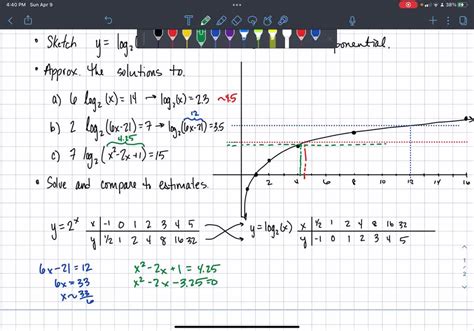 4:40 PM Sun Apr 9
38%
• Sketch y = log₂( ponential.
• Approx. the solutions to.
a) 6 log₂(x) = 14 → log₂(x) = 2.3 ~4.5
12
b) 2 log₂(6x-21) = 7 → log₂(6x-21) = 3.5
4.25
c) 7 log₂(x²-2x+1) = 15
2 4 6 8 10 12 14 16
• Solve and compare to estimates.
y = 2ˣ
x | -1 0 1 2 3 4 5
y | 1/2 1 2 4 8 16 32
y = log₂(x)
x | 1/2 1 2 4 8 16 32
y | -1 0 1 2 3 4 5
6x - 21 = 12
6x = 33
x ~ 33/6
x² - 2x + 1 = 4.25
x² - 2x - 3.25 = 0
1
2